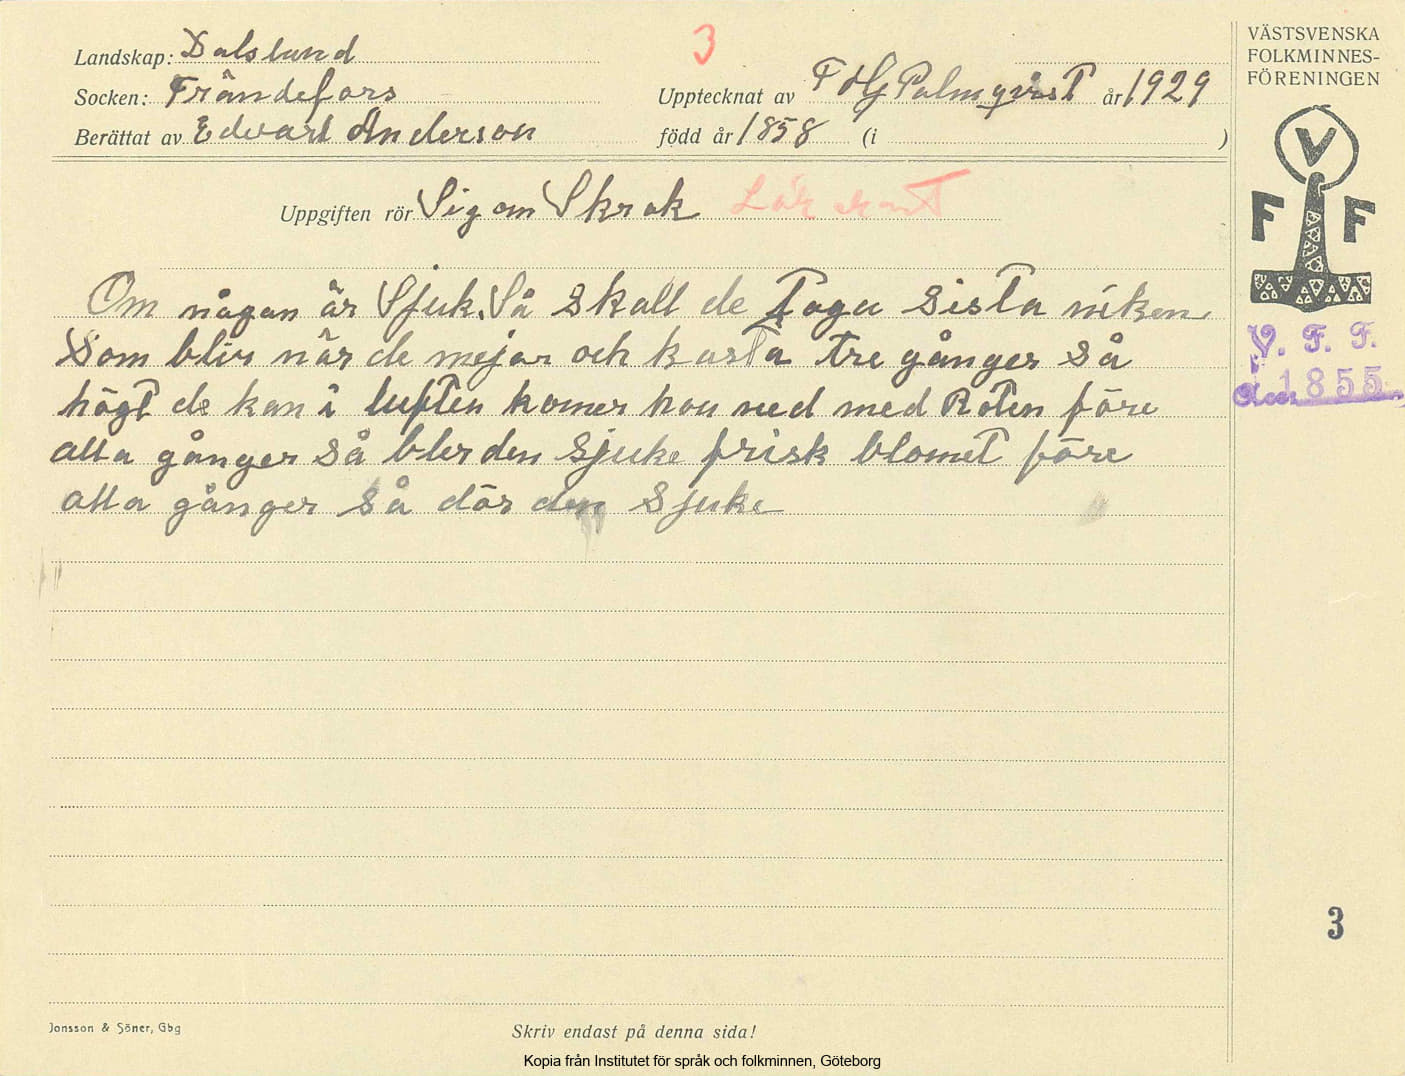 3
Landskap: Dalsland
Socken: Frändefors
Upptecknat av F Hj Palmqvist år 1929
Berättat av Edvart Anderson född år 1858 (i )
Uppgiften rör Sig om Skrok
VÄSTSVENSKA
FOLKMINNES-
FÖRENINGEN
V
F F
V. F. F.
1855
Om någon är Sjuk. Så skall de Taga sista niken
Som blir när de mejar och kasta tre gånger så
högt de kan i luften komer hon ned med Roten före
alla gånger så bler den sjuke frisk blomet före
alla gånger så dör den sjuke
3
Jonsson & Söner, Gbg
Skriv endast på denna sida!
Kopia från Institutet för språk och folkminnen, Göteborg